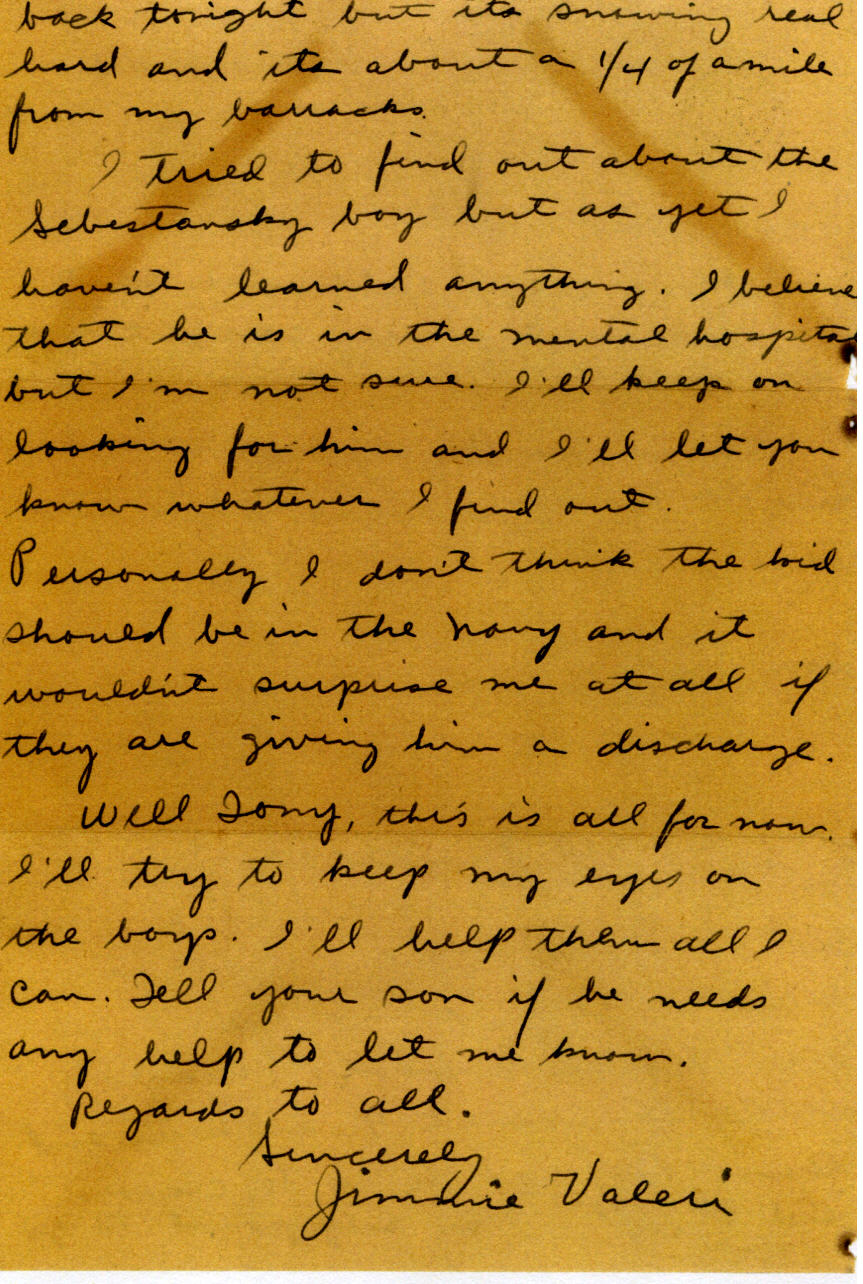 back tonight but its snowing real
hard and its about a 1/4 of a mile
from my barracks.
I tried to find out about the
Sebestansky boy but as yet I
haven't learned anything. I believe
that he is in the mental hospital
but I'm not sure. I'll keep on
looking for him and I'll let you
know whatever I find out.
Personally I don't think the kid
should be in the Navy and it
wouldn't surprise me at all if
they are giving him a discharge.
Well Tony, this is all for now.
I'll try to keep my eyes on
the boys. I'll help them all I
can. Tell your son if he needs
any help to let me know.
Regards to all.
Sincerely
Jimmie Valeri